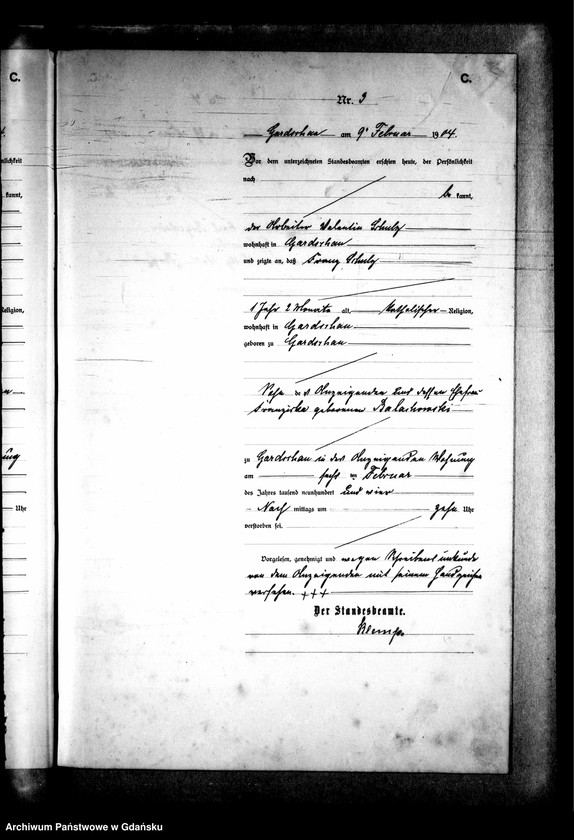 C.
C.
Nr. 3
Gardschau am 9ᵗ Februar 1904.
Vor dem unterzeichneten Standesbeamten erschien heute, der Persönlichkeit
nach
be kannt,
der Arbeiter Valentin Schulz
wohnhaft in Gardschau
und zeigte an, daß Franz Schulz
1 Jahr 2 Monate alt, katholischer Religion,
wohnhaft in Gardschau
geboren zu Gardschau
Sohn des Anzeigenden und dessen Ehefrau
Franziska geborenen Balachowski
zu Gardschau in des Anzeigenden Wohnung
am Februar
des Jahres tausend neunhundert und vier
Nach mittags um zehn Uhr
verstorben sei.
Vorgelesen, genehmigt und wegen Schreibensunkunde
von dem Anzeigenden mit seinem Handzeichen
versehen. +++
Der Standesbeamte.
Archiwum Państwowe w Gdańsku